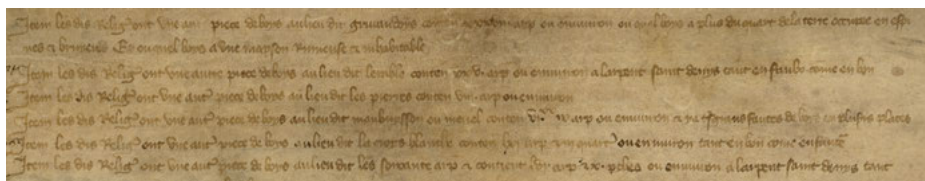 Item les dis Relig' ont une aut' piece de boys au lieu dit conten arp ou environ ou quel boys a plus du quart de la terre occupee en espi
nes & bruieres Et ou quel boys a une maison Ruineuse & inhabitable
Item les dis Relig' ont une autre piece de boys au lieu dit conten xxvi arp ou environ a larpent saint denis tant en come en bon
Item les dis Relig' ont une aut' piece de boys au lieu dit les pierres conten viii arp ou environ
Item les dis Relig' ont une aut' piece de boys au lieu dit maubuisson ou mesnil conten arp ou environ & ya faultes de boys en plus's places
Item les dis Relig' ont une aut' piece de boys au lieu dit la croix blanche conten arp quart' ou environ tant en bon come
Item les dis Relig' ont une aut' piece de boys au lieu dit les soixante arp & contient arp xx perches ou environ a larpent saint denis tant